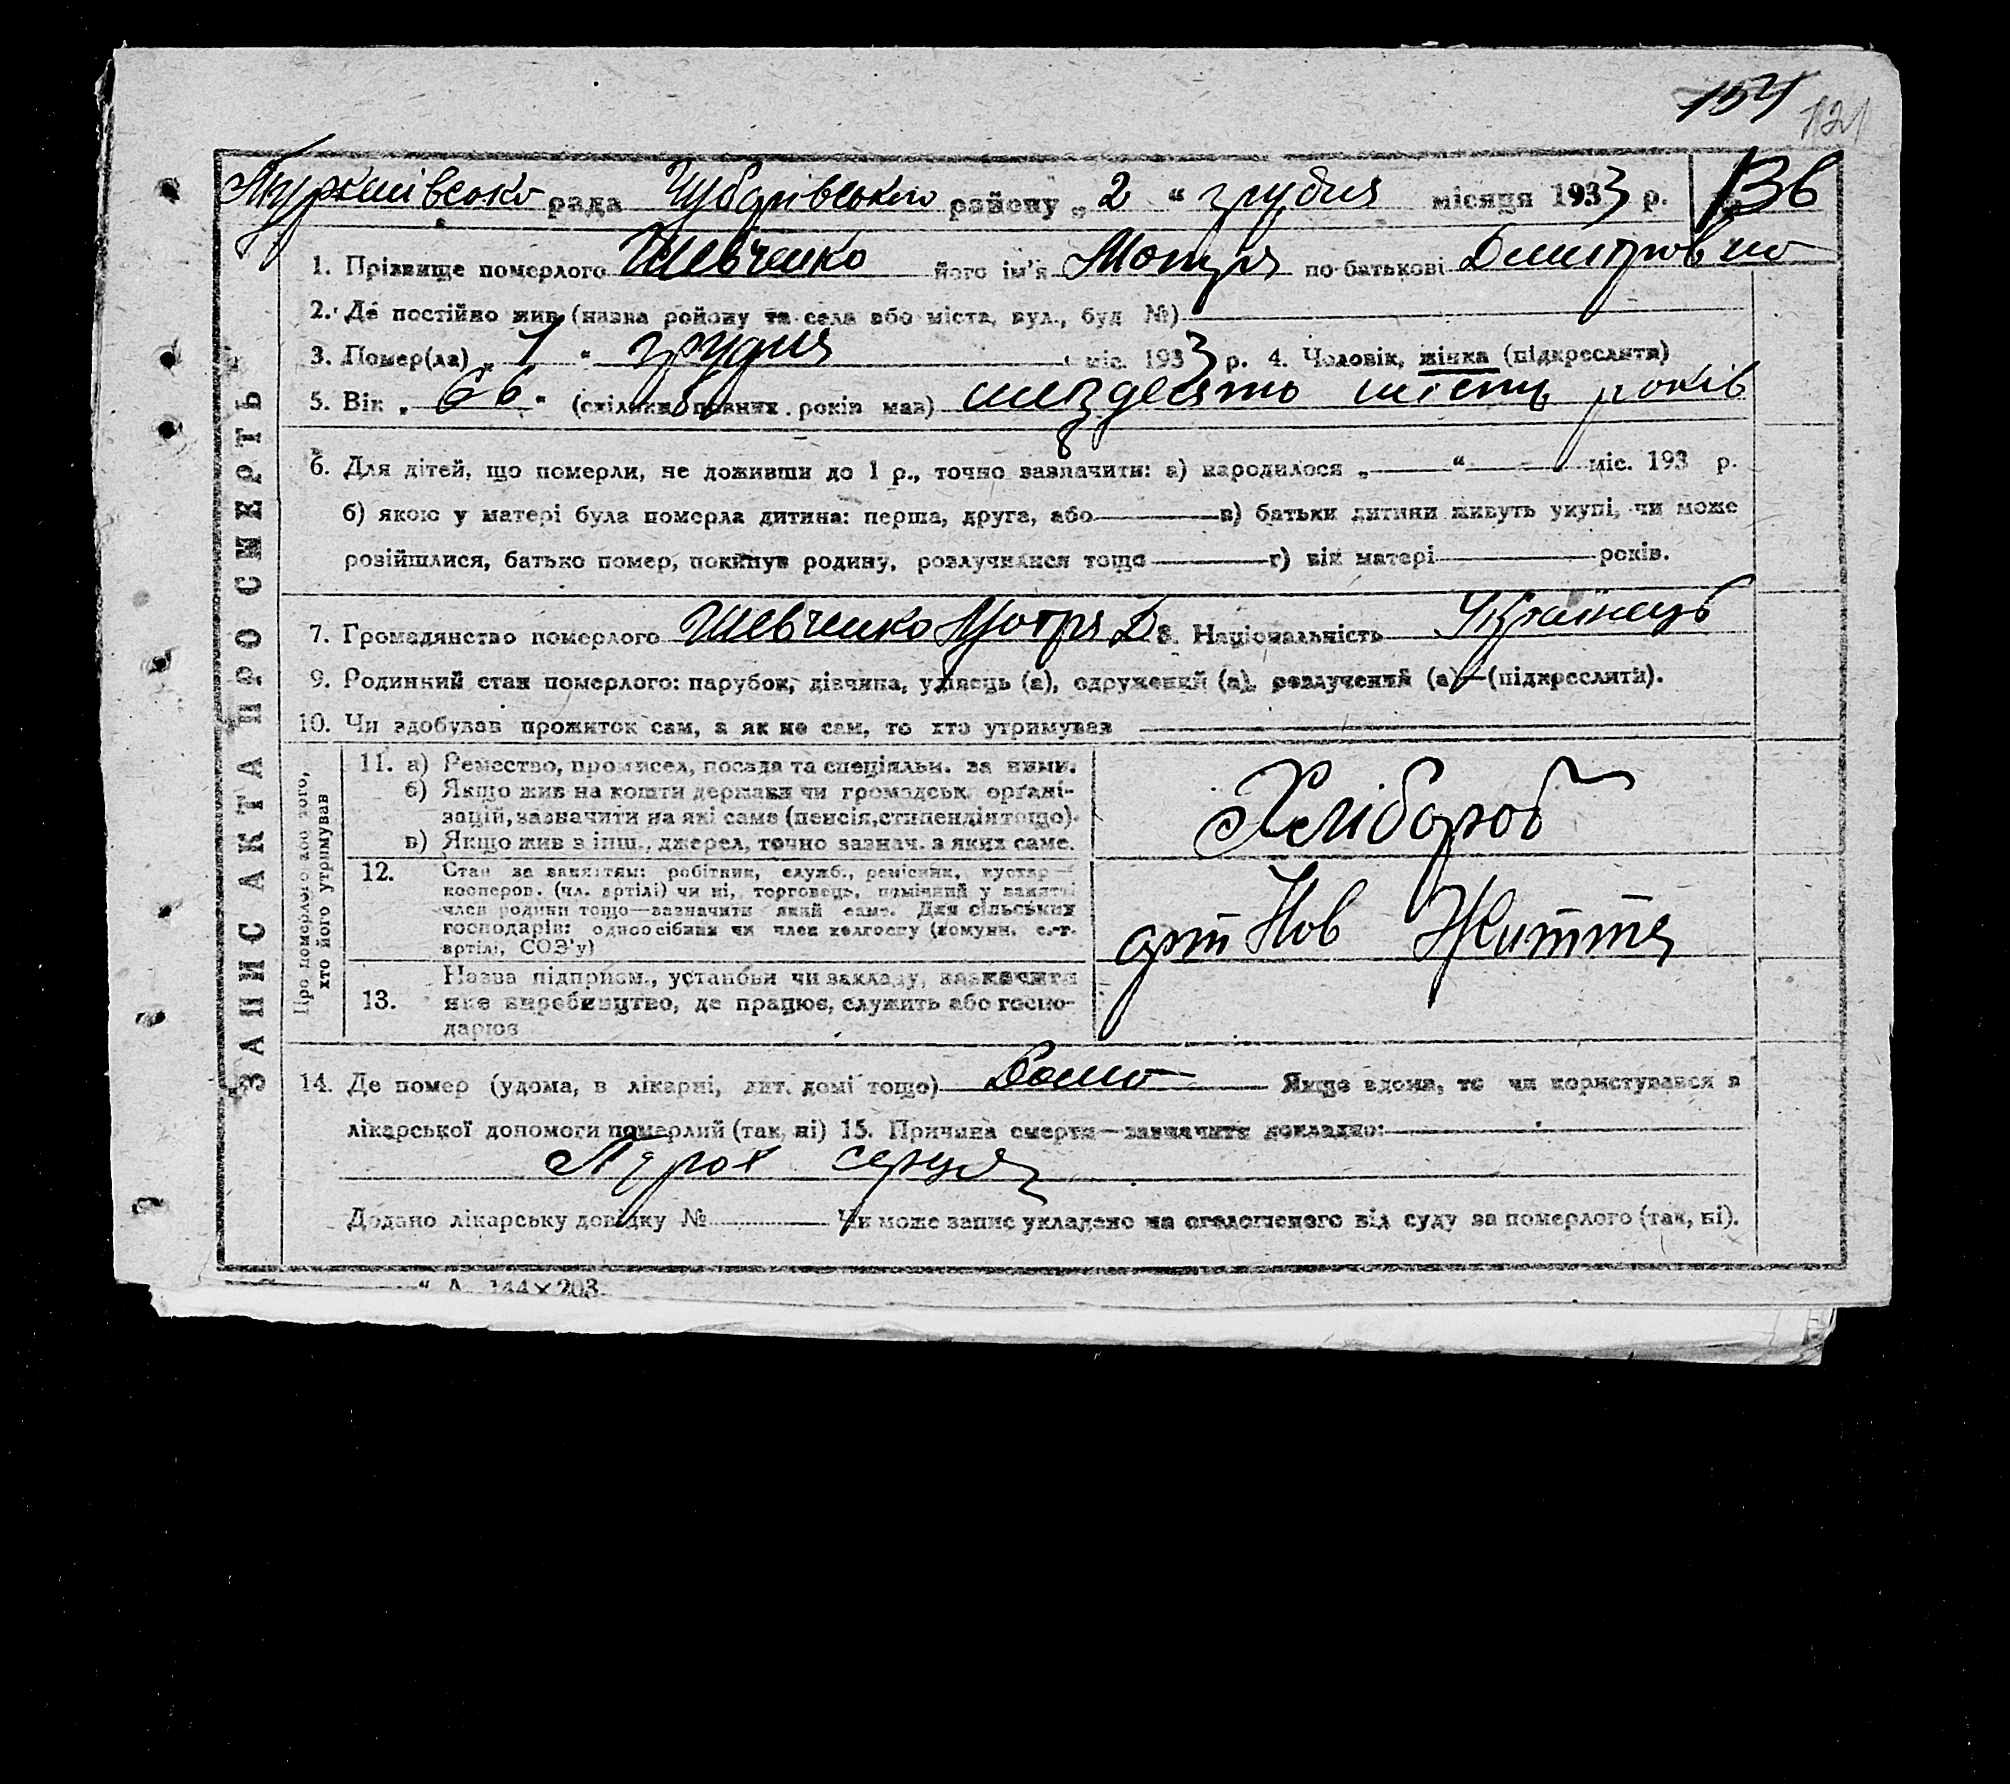 121
рада Чубарівського району „ 2 “ грудня місяця 1933 р. 136
1. Прізвище померлого Шевченко його ім'я Мотря по-батькові Дмитровно
2. Де постійно жив (назва району та села або міста, вул., буд №)
3. Помер(ла) „ 1 “ грудня міс. 1933 р. 4. Чоловік, жінка (підкреслити)
5. Вік „ 66 “ (скільки повних років мав) шіздесять шість років
6. Для дітей, що померли, не доживши до 1 р., точно зазначити: а) народилося „ “ міс. 193 р.
б) якою у матері була померла дитина: перша, друга, або в) батьки дитини живуть укупі, чи може
розійшлися, батько помер, покинув родину, розлучилися тощо г) вік матері років.
7. Громадянство померлого Шевченко Мотря Д 8. Національність Українець
9. Родинний стан померлого: парубок, дівчина, удівець (а), одружений (а), розлучений (а)—(підкреслити).
10. Чи здобував прожиток сам, а як не сам, то хто утримував
ЗАПИС АКТА ПРО СМЕРТЬ
Про померлого або того,
хто його утримував
11. а) Ремество, промисел, посада та спеціяльн. за ними.
б) Якщо жив на кошти держави чи громадськ. організацій, зазначити на які саме (пенсія, стипендія тощо).
в) Якщо жив з інш., джерел, точно зазнач. з яких саме.
Хлібороб
12. Стан за заняттям: робітник, служб., ремісник, кустар—
кооперов. (чл. артілі) чи ні, торговець, помічний у занятті
член родини тощо—зазначити який саме. Для сільських
господарів: одноосібник чи член колгоспу (комуни, с.-г.
артілі, СОЗ'у)
арт Нов Життя
13. Назва підприєм., установи чи закладу, зазначити
яке виробництво, де працює, служить або господарює
14. Де помер (удома, в лікарні, дит. домі тощо) Дома Якщо вдома, то чи користувався з
лікарської допомоги померлий (так, ні) 15. Причина смерти—зазначити докладно:
серця
Додано лікарську довідку № Чи може запис укладено на оголошеного від суду за померлого (так, ні).
“ А 144×203.